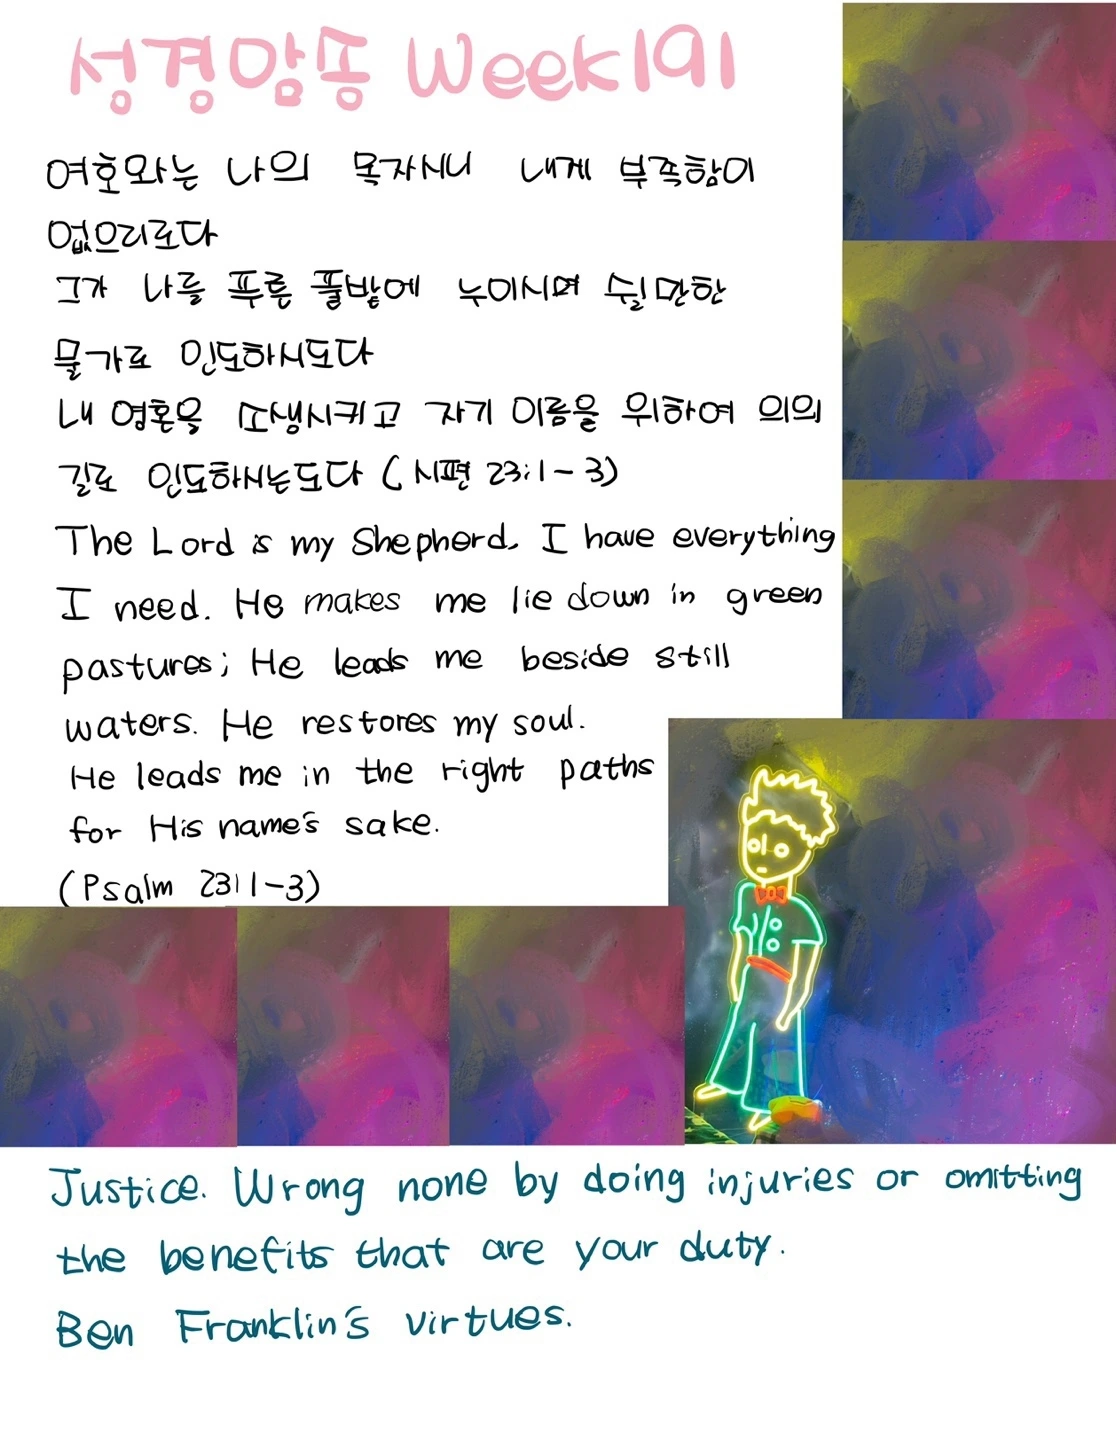 성경암송 Week191
여호와는 나의 목자시니 내게 부족함이
없으리로다
그가 나를 푸른 풀밭에 누이시며 쉴만한
물가로 인도하시도다
내 영혼을 소생시키고 자기 이름을 위하여 의의
길로 인도하시는도다 (시편 23:1-3)
The Lord is my Shepherd. I have everything
I need. He makes me lie down in green
pastures; He leads me beside still
waters. He restores my soul.
He leads me in the right paths
for His name's sake.
(Psalm 23:1-3)
Justice. Wrong none by doing injuries or omitting
the benefits that are your duty.
Ben Franklin's virtues.